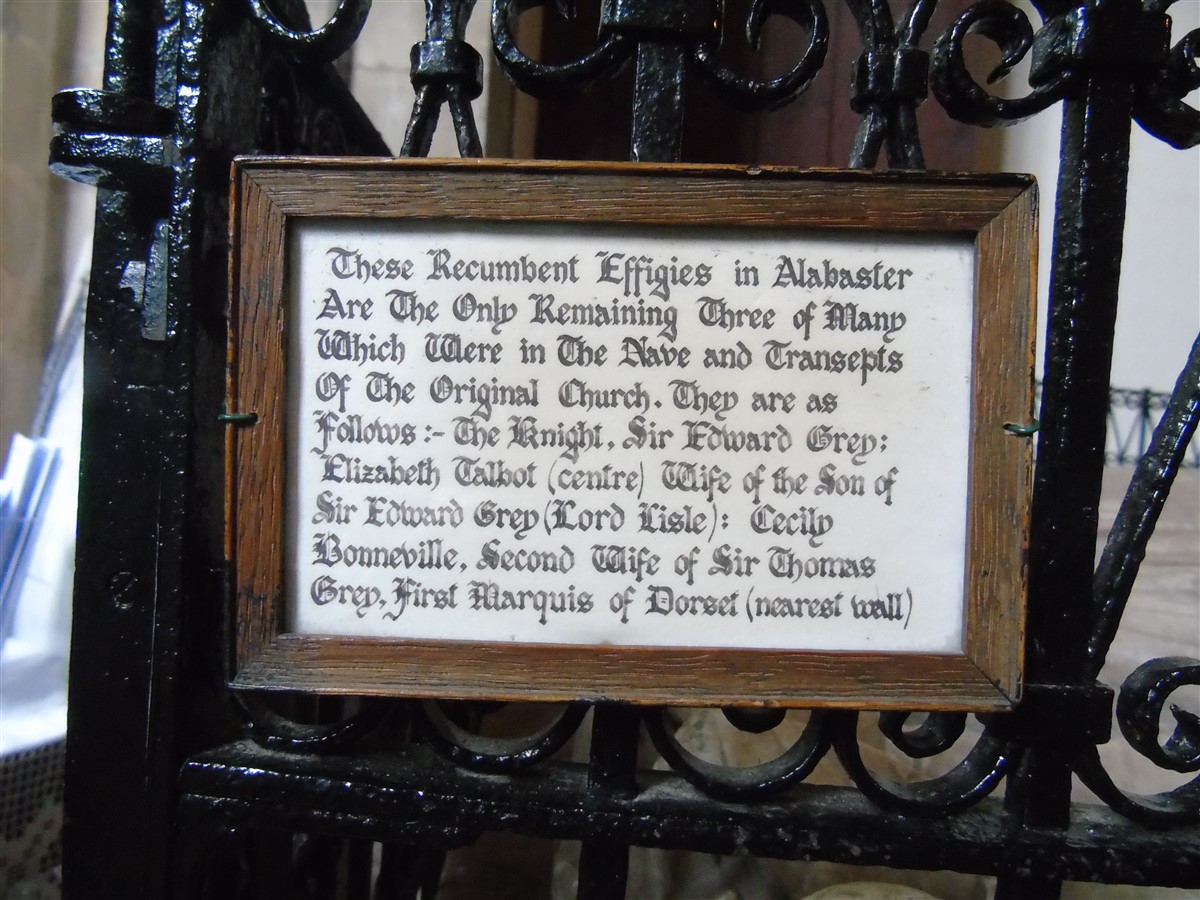 These Recumbent Effigies in Alabaster
Are The Only Remaining Three of Many
Which Were in The Nave and Transepts
Of The Original Church. They are as
Follows:- The Knight, Sir Edward Grey;
Elizabeth Talbot (centre) Wife of the Son of
Sir Edward Grey (Lord Lisle): Cecily
Bonneville, Second Wife of Sir Thomas
Grey, First Marquis of Dorset (nearest wall)